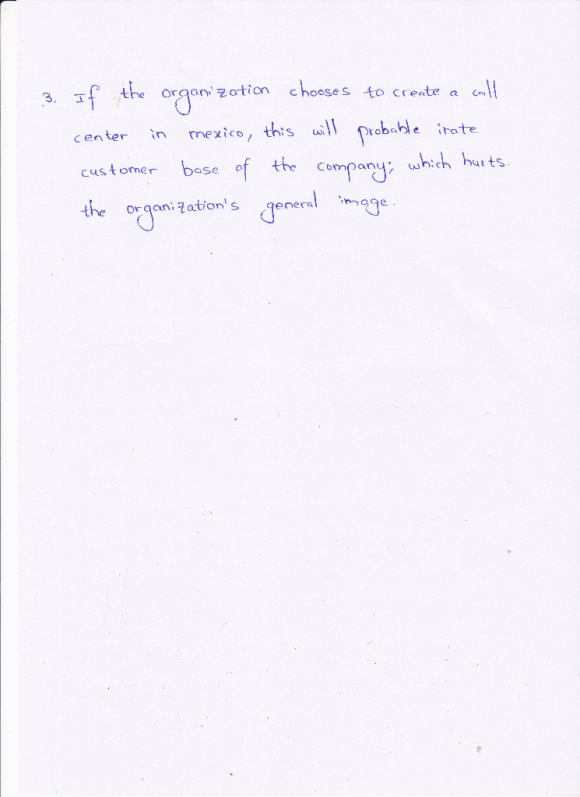 3. If the organization chooses to create a call
center in mexico, this will probable irate
customer base of the company; which hurts.
the organization's general image.